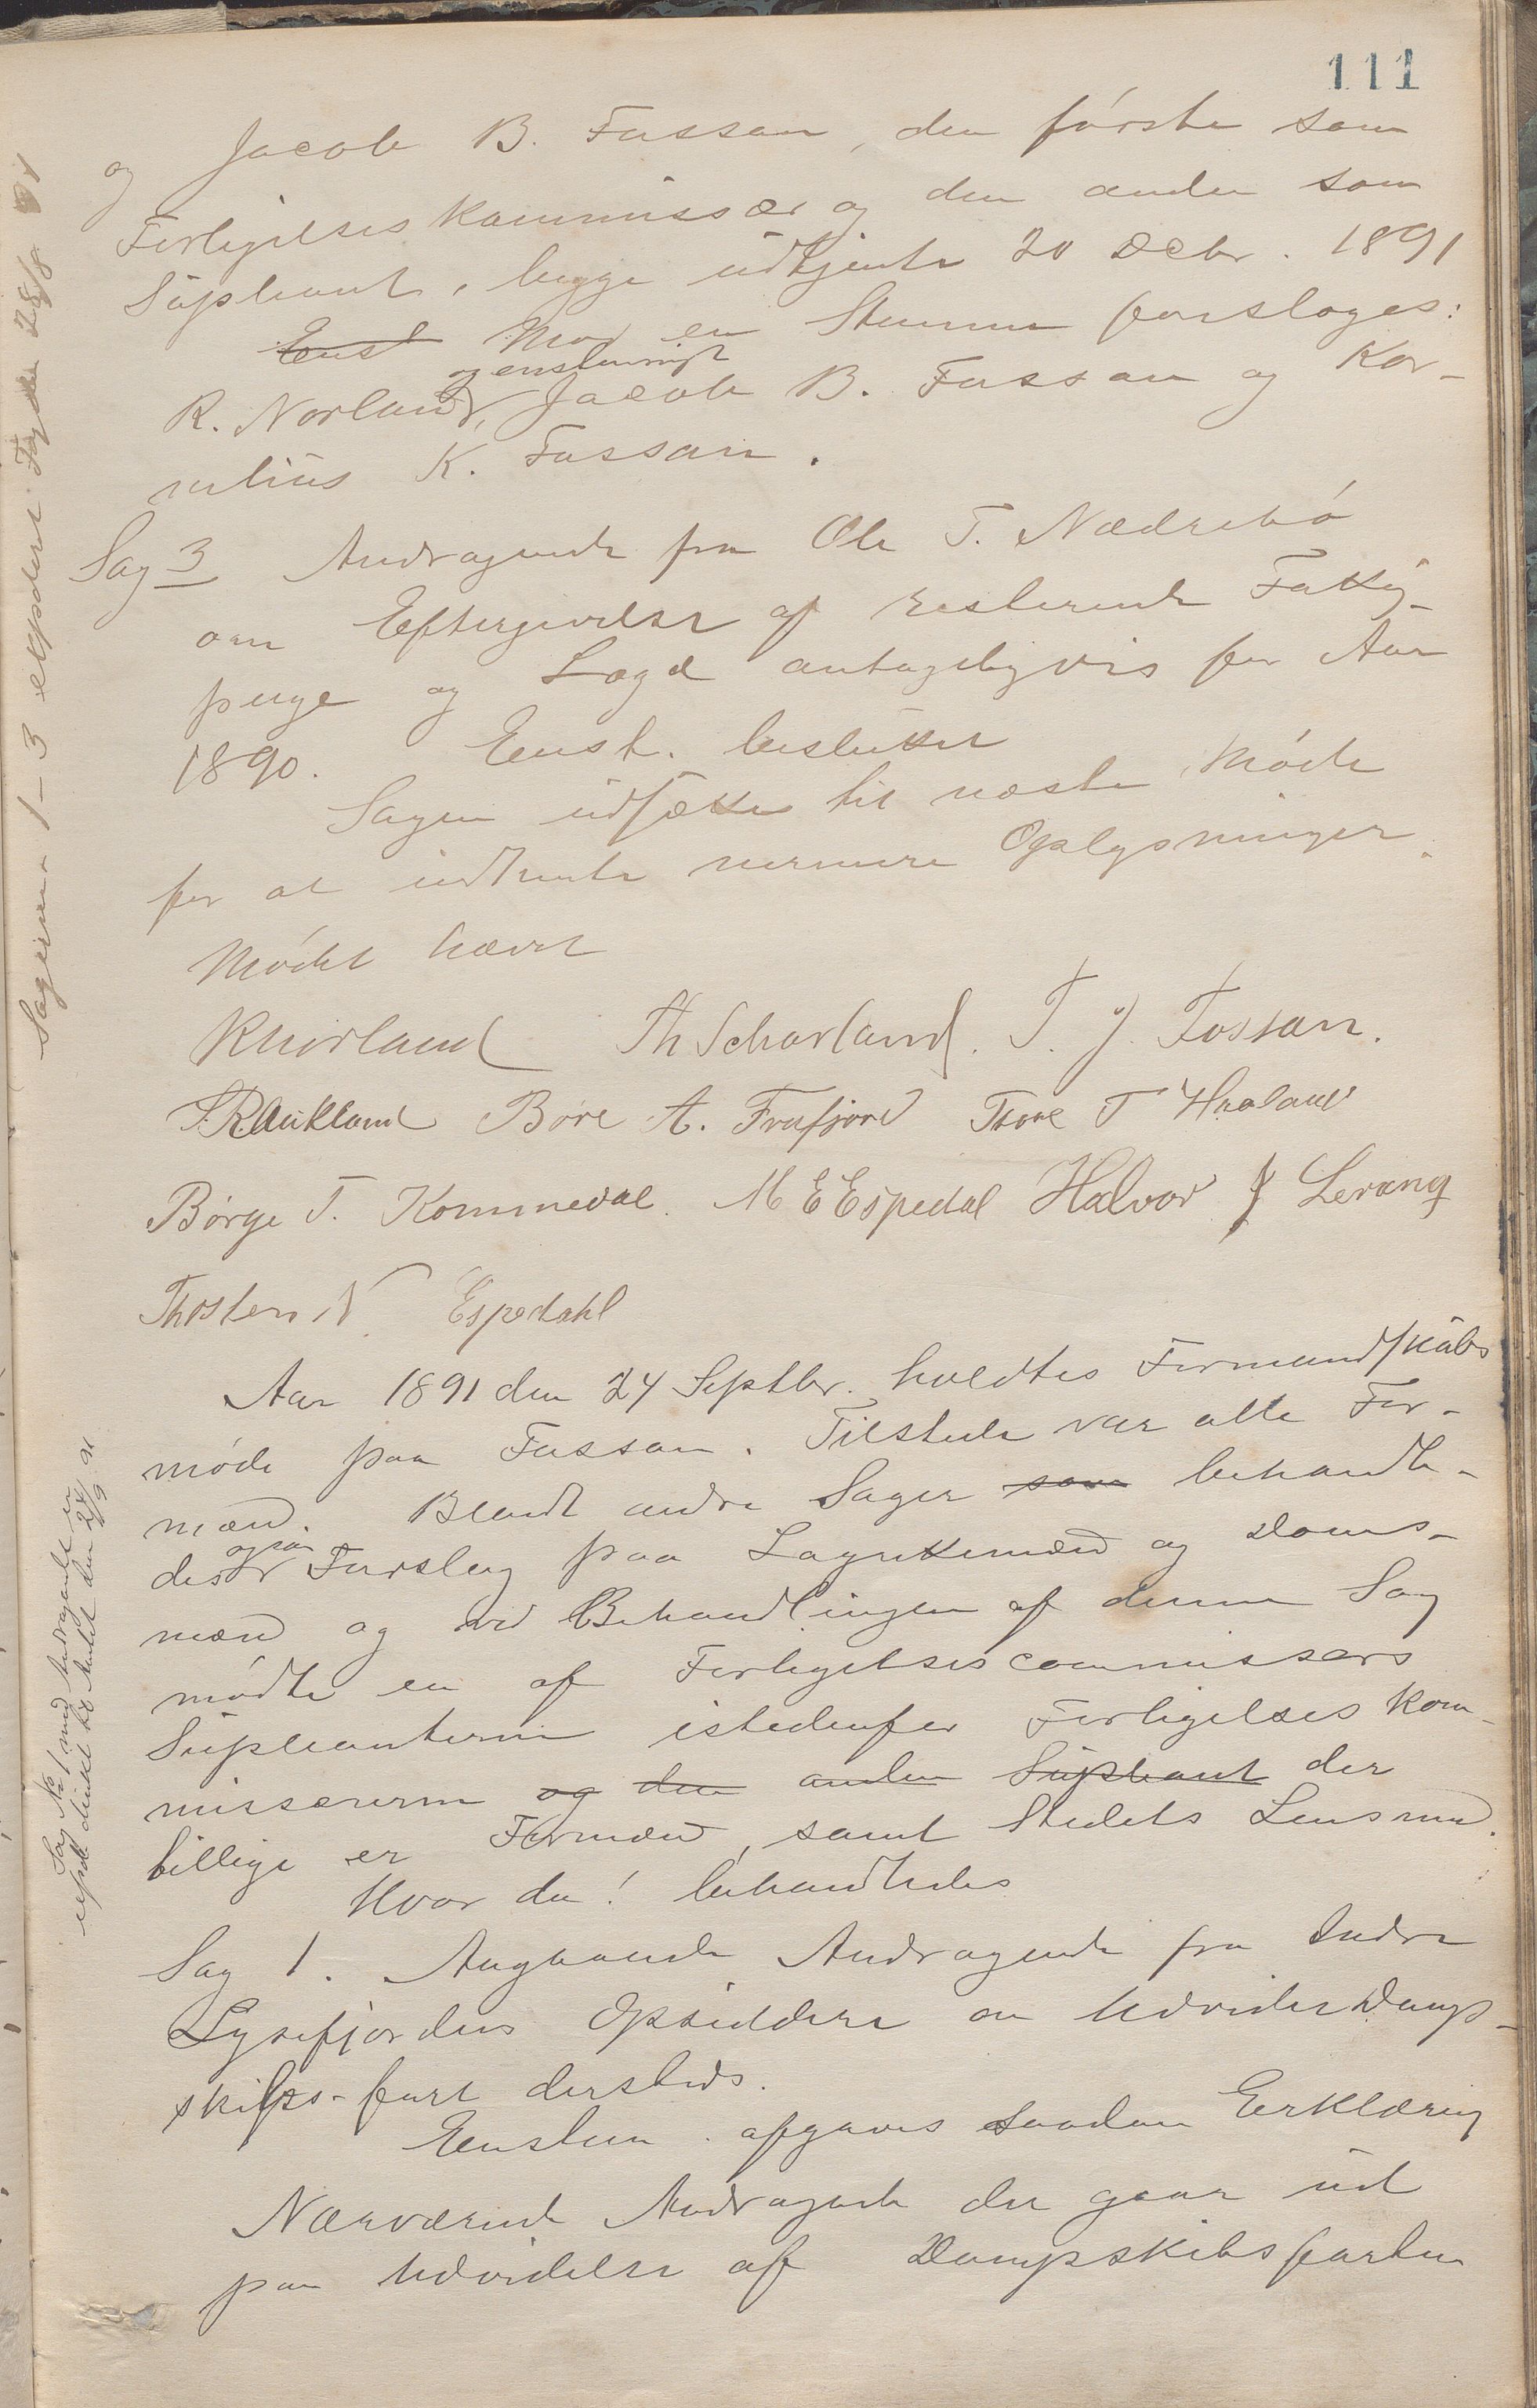 111
og Jacob B. Fossan, den første som
Forligelseskommissær og den anden som
Supleant, begge udtjente 20 Decbr. 1891
Enst Mod en Stemme foresloges:
R. Norland, og enstemmigt Jacob B. Fossan og Kor-
nelius K. Fossan.
Sag 3 Andragende fra Ole T. Nedrebø
om Eftergivelse af resterende Fattig-
penge og Lægd antageligvis for Aar
1890. Enst. besluttet
Sagen udsættes til næste Møde
for at indhente nermere Oplysninger.
Mødet hævet
R Norland Th Scharland. T. J. Fossan.
T. R. Aukland Børe A. Frafjord Tore T Haaland
Børge T. Kommedal. M E Espedal Halvor J Lerang
Thosten N. Espedahl
Aar 1891 den 24 Septbr. holdtes Formandskabs
møde paa Fossan. Tilstede var alle For-
mænd. Blandt andre Sager som behandle-
des ogsaa Forslag paa Lagrettemænd og Doms-
mænd og ved Behandlingen af denne Sag
mødte en af Forligelsescommissærs
Supleanterne istedenfor Forligelseskom-
missærerne og den anden Supleant der
tillige er Formænd, samt Stedets Lensmd.
Hvor da! behandledes
Sag 1. Angaaende Andragende fra Indre
Lysefjordens Opsiddere om Udvidet Damp-
skibs-fart dersteds.
Enstem. afgaves saadan Erklæring
Nærværende Andragende der gaar ud
paa Udvidelse af Dampskibsfarten
Sagerne 1-3 expederet Fogden 28/8 91
Sag No 1 med Andragende er
expd direkte til Amtet den 28/9 91